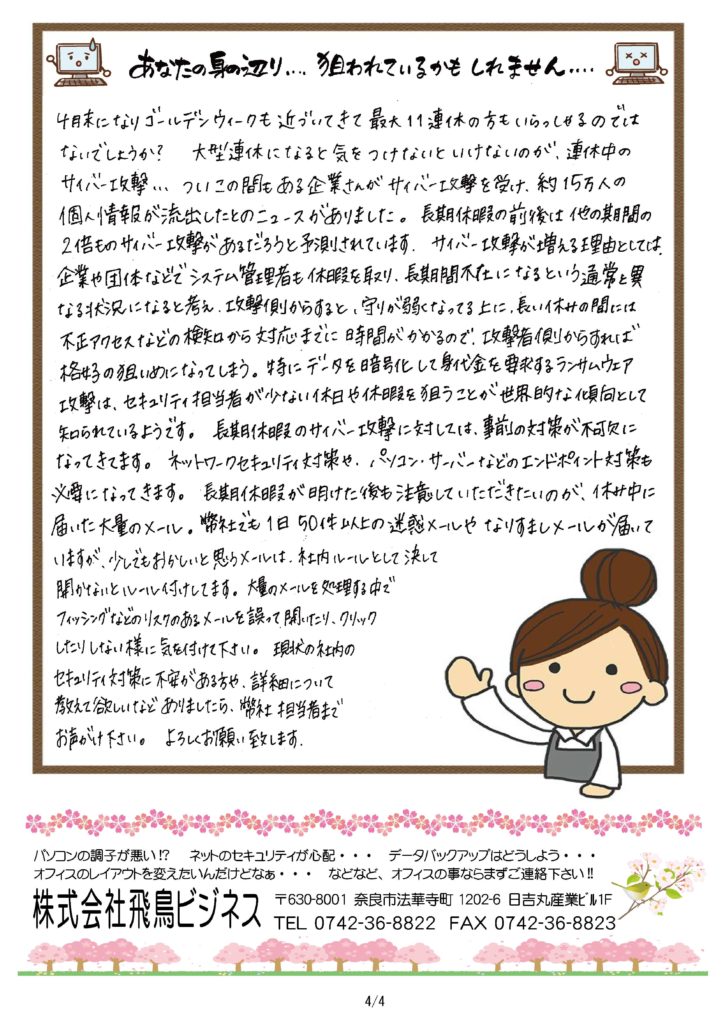 あなたの身の辺り.... 狙われているかもしれません....
4月末になりゴールデンウィークも近づいてきて最大11連休の方もいらっしゃるのでは
ないでしょうか? 大型連休になると気をつけないといけないのが、連休中の
サイバー攻撃... ついこの間もある企業さんがサイバー攻撃を受け、約15万人の
個人情報が流出したとのニュースがありました。長期休暇の前後は他の期間の
2倍ものサイバー攻撃があるだろうと予測されています. サイバー攻撃が増える理由としては、
企業や団体などでシステム管理者も休暇を取り、長期間不在になるという通常と異
なる状況になると考え、攻撃側からすると、守りが弱くなってる上に、長い休みの間には
不正アクセスなどの検知から対応までに時間がかかるので、攻撃者側からすれば
格好の狙いめになってしまう。特にデータを暗号化して身代金を要求するランサムウェア
攻撃は、セキュリティ担当者が少ない休日や休暇を狙うことが世界的な傾向として
知られているようです。長期休暇のサイバー攻撃に対しては、事前の対策が不可欠に
なってきてます。ネットワークセキュリティ対策や、パソコン・サーバーなどのエンドポイント対策も
必要になってきます。長期休暇が明けた後も注意していただきたいのが、休み中に
届いた大量のメール。弊社でも1日50件以上の迷惑メールやなりすましメールが届いて
いますが、少しでもおかしいと思うメールは、社内ルールとして決して
開かないとルール付けしてます。大量のメールを処理する中で
フィッシングなどのリスクのあるメールを誤って開いたり、クリック
したりしない様に気を付けて下さい。現状の社内の
セキュリティ対策に不安がある方や、詳細について
教えて欲しいなどありましたら、弊社担当者まで
お声がけ下さい。よろしくお願い致します.
パソコンの調子が悪い!? ネットのセキュリティが心配・・・ データバックアップはどうしよう・・・
オフィスのレイアウトを変えたいんだけどなぁ・・・ などなど、オフィスの事ならまずご連絡下さい!!
株式会社飛鳥ビジネス 〒630-8001 奈良市法華寺町 1202-6 日吉丸産業ビル1F
TEL 0742-36-8822 FAX 0742-36-8823
4/4